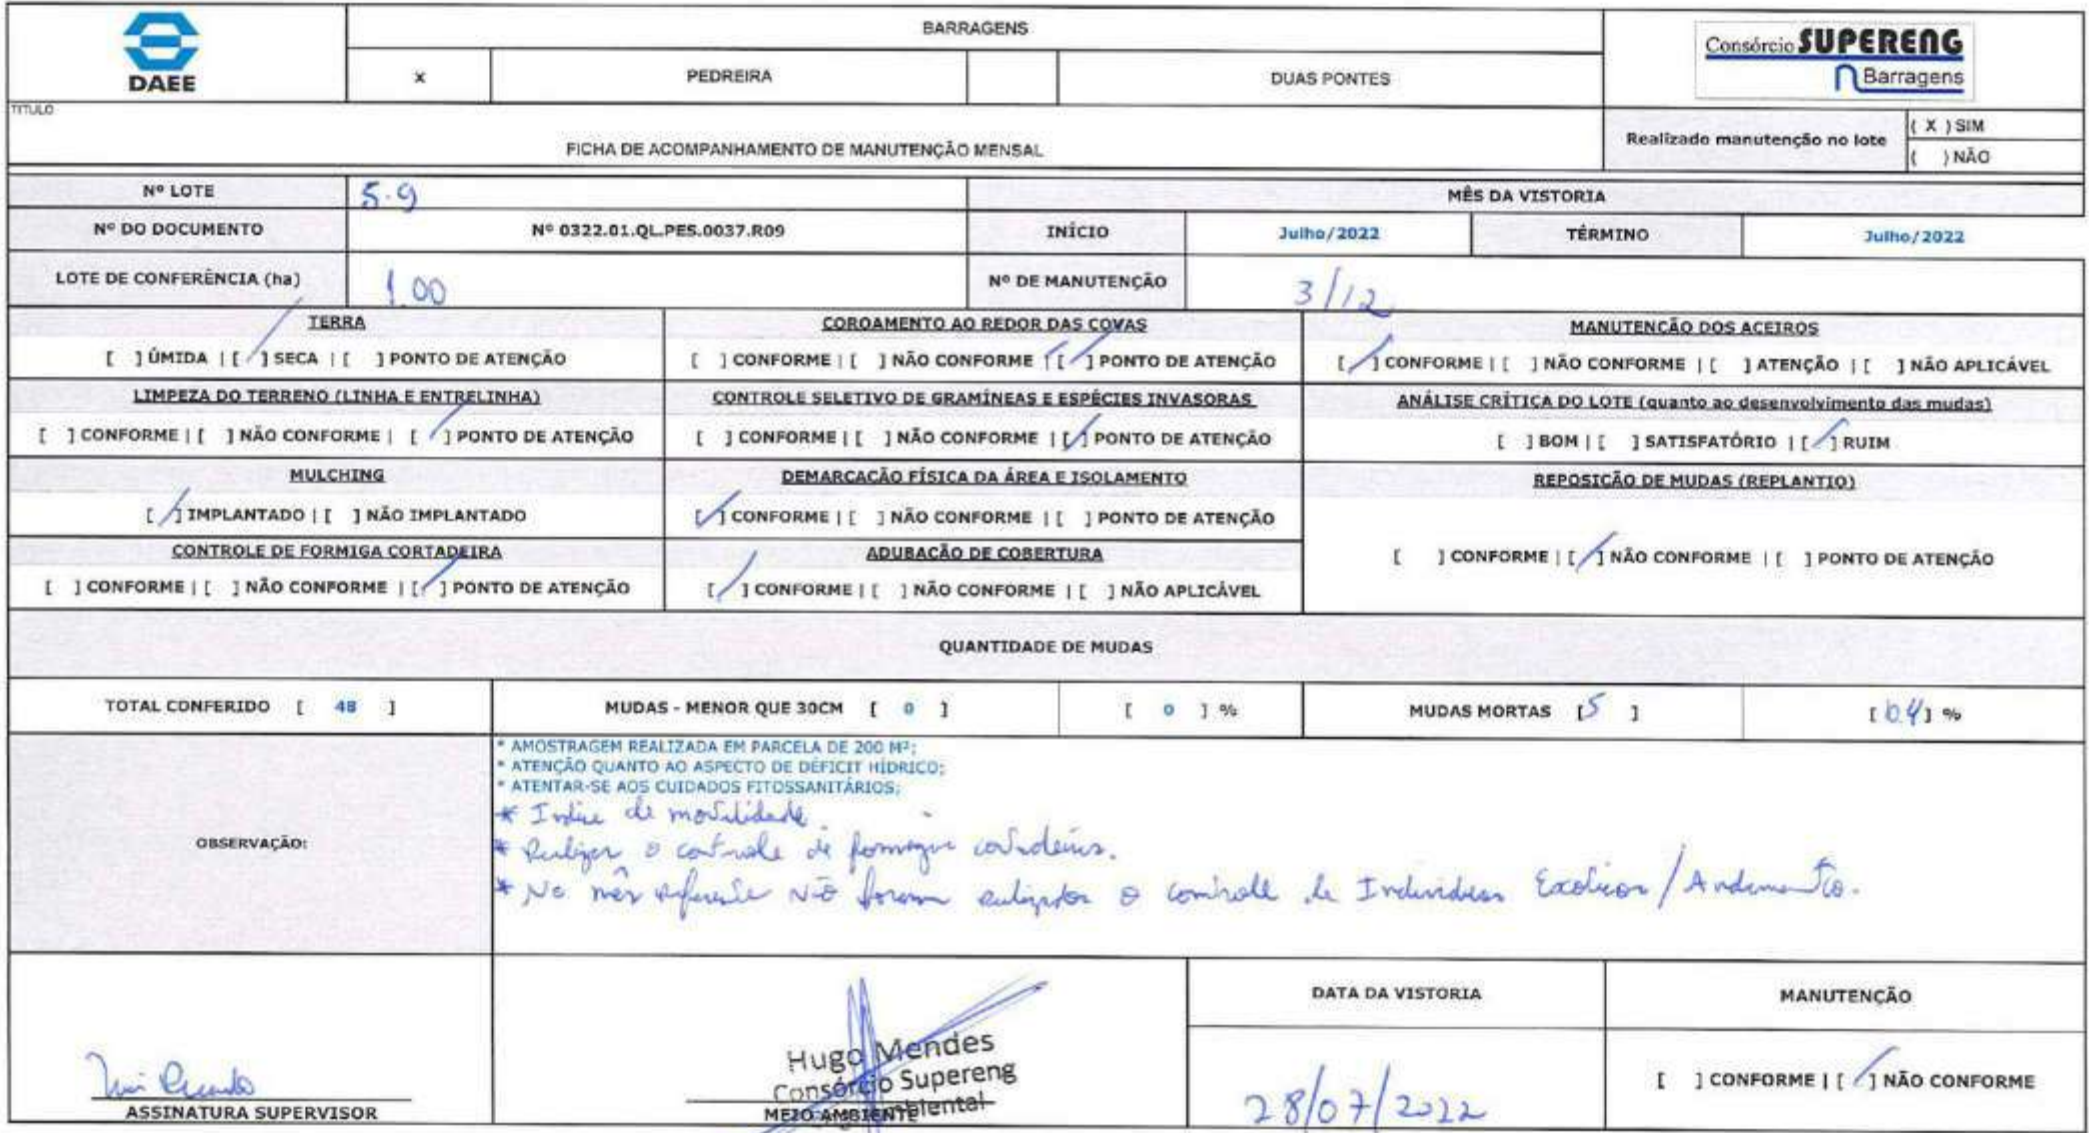 DAEE
BARRAGENS
X PEDREIRA DUAS PONTES
Consórcio SUPERENG
Barragens
TITULO
FICHA DE ACOMPANHAMENTO DE MANUTENÇÃO MENSAL
Realizado manutenção no lote
( X ) SIM
( ) NÃO
Nº LOTE 5.9 MÊS DA VISTORIA
Nº DO DOCUMENTO Nº 0322.01.QL.PES.0037.R09 INÍCIO Julho/2022 TÉRMINO Julho/2022
LOTE DE CONFERÊNCIA (ha) 1.00 Nº DE MANUTENÇÃO 3/12
TERRA
[ ] ÚMIDA | [ / ] SECA | [ ] PONTO DE ATENÇÃO
COROAMENTO AO REDOR DAS COVAS
[ ] CONFORME | [ ] NÃO CONFORME | [ / ] PONTO DE ATENÇÃO
MANUTENCÃO DOS ACEIROS
[ / ] CONFORME | [ ] NÃO CONFORME | [ ] ATENÇÃO | [ ] NÃO APLICÁVEL
LIMPEZA DO TERRENO (LINHA E ENTRELINHA)
[ ] CONFORME | [ ] NÃO CONFORME | [ / ] PONTO DE ATENÇÃO
CONTROLE SELETIVO DE GRAMÍNEAS E ESPÉCIES INVASORAS
[ ] CONFORME | [ ] NÃO CONFORME | [ / ] PONTO DE ATENÇÃO
ANÁLISE CRÍTICA DO LOTE (quanto ao desenvolvimento das mudas)
[ ] BOM | [ ] SATISFATÓRIO | [ / ] RUIM
MULCHING
[ / ] IMPLANTADO | [ ] NÃO IMPLANTADO
DEMARCAÇÃO FÍSICA DA ÁREA E ISOLAMENTO
[ / ] CONFORME | [ ] NÃO CONFORME | [ ] PONTO DE ATENÇÃO
REPOSIÇÃO DE MUDAS (REPLANTIO)
[ ] CONFORME | [ / ] NÃO CONFORME | [ ] PONTO DE ATENÇÃO
CONTROLE DE FORMIGA CORTADEIRA
[ ] CONFORME | [ ] NÃO CONFORME | [ / ] PONTO DE ATENÇÃO
ADUBAÇÃO DE COBERTURA
[ / ] CONFORME | [ ] NÃO CONFORME | [ ] NÃO APLICÁVEL
QUANTIDADE DE MUDAS
TOTAL CONFERIDO [ 48 ] MUDAS - MENOR QUE 30CM [ 0 ] [ 0 ] % MUDAS MORTAS [ 5 ] [ ] %
OBSERVAÇÃO:
* AMOSTRAGEM REALIZADA EM PARCELA DE 200 M²;
* ATENÇÃO QUANTO AO ASPECTO DE DÉFICIT HÍDRICO;
* ATENTAR-SE AOS CUIDADOS FITOSSANITÁRIOS;
* Indice de mortalidade.
* Realizar o controle de formigas cortadeiras.
* No mês referente não foram realizados o controle de Individuos Exoticos/
ASSINATURA SUPERVISOR
Hugo Mendes
Consórcio Supereng
MEIO AMBIENTE
DATA DA VISTORIA
28/07/2022
MANUTENÇÃO
[ ] CONFORME | [ / ] NÃO CONFORME